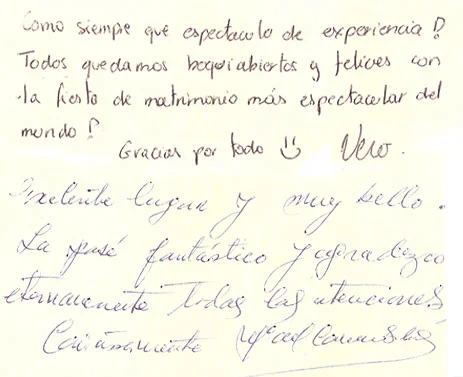 Como siempre que espectaculo de experiencia!
Todos quedamos boquiabiertos y felices con
la fiesta de matrimonio más espectacular del
mundo!
Gracias por todo Vero.
Excelente lugar y muy bello.
La pasé fantástico y agradezco
eternamente todas las atenciones
Cariñosamente